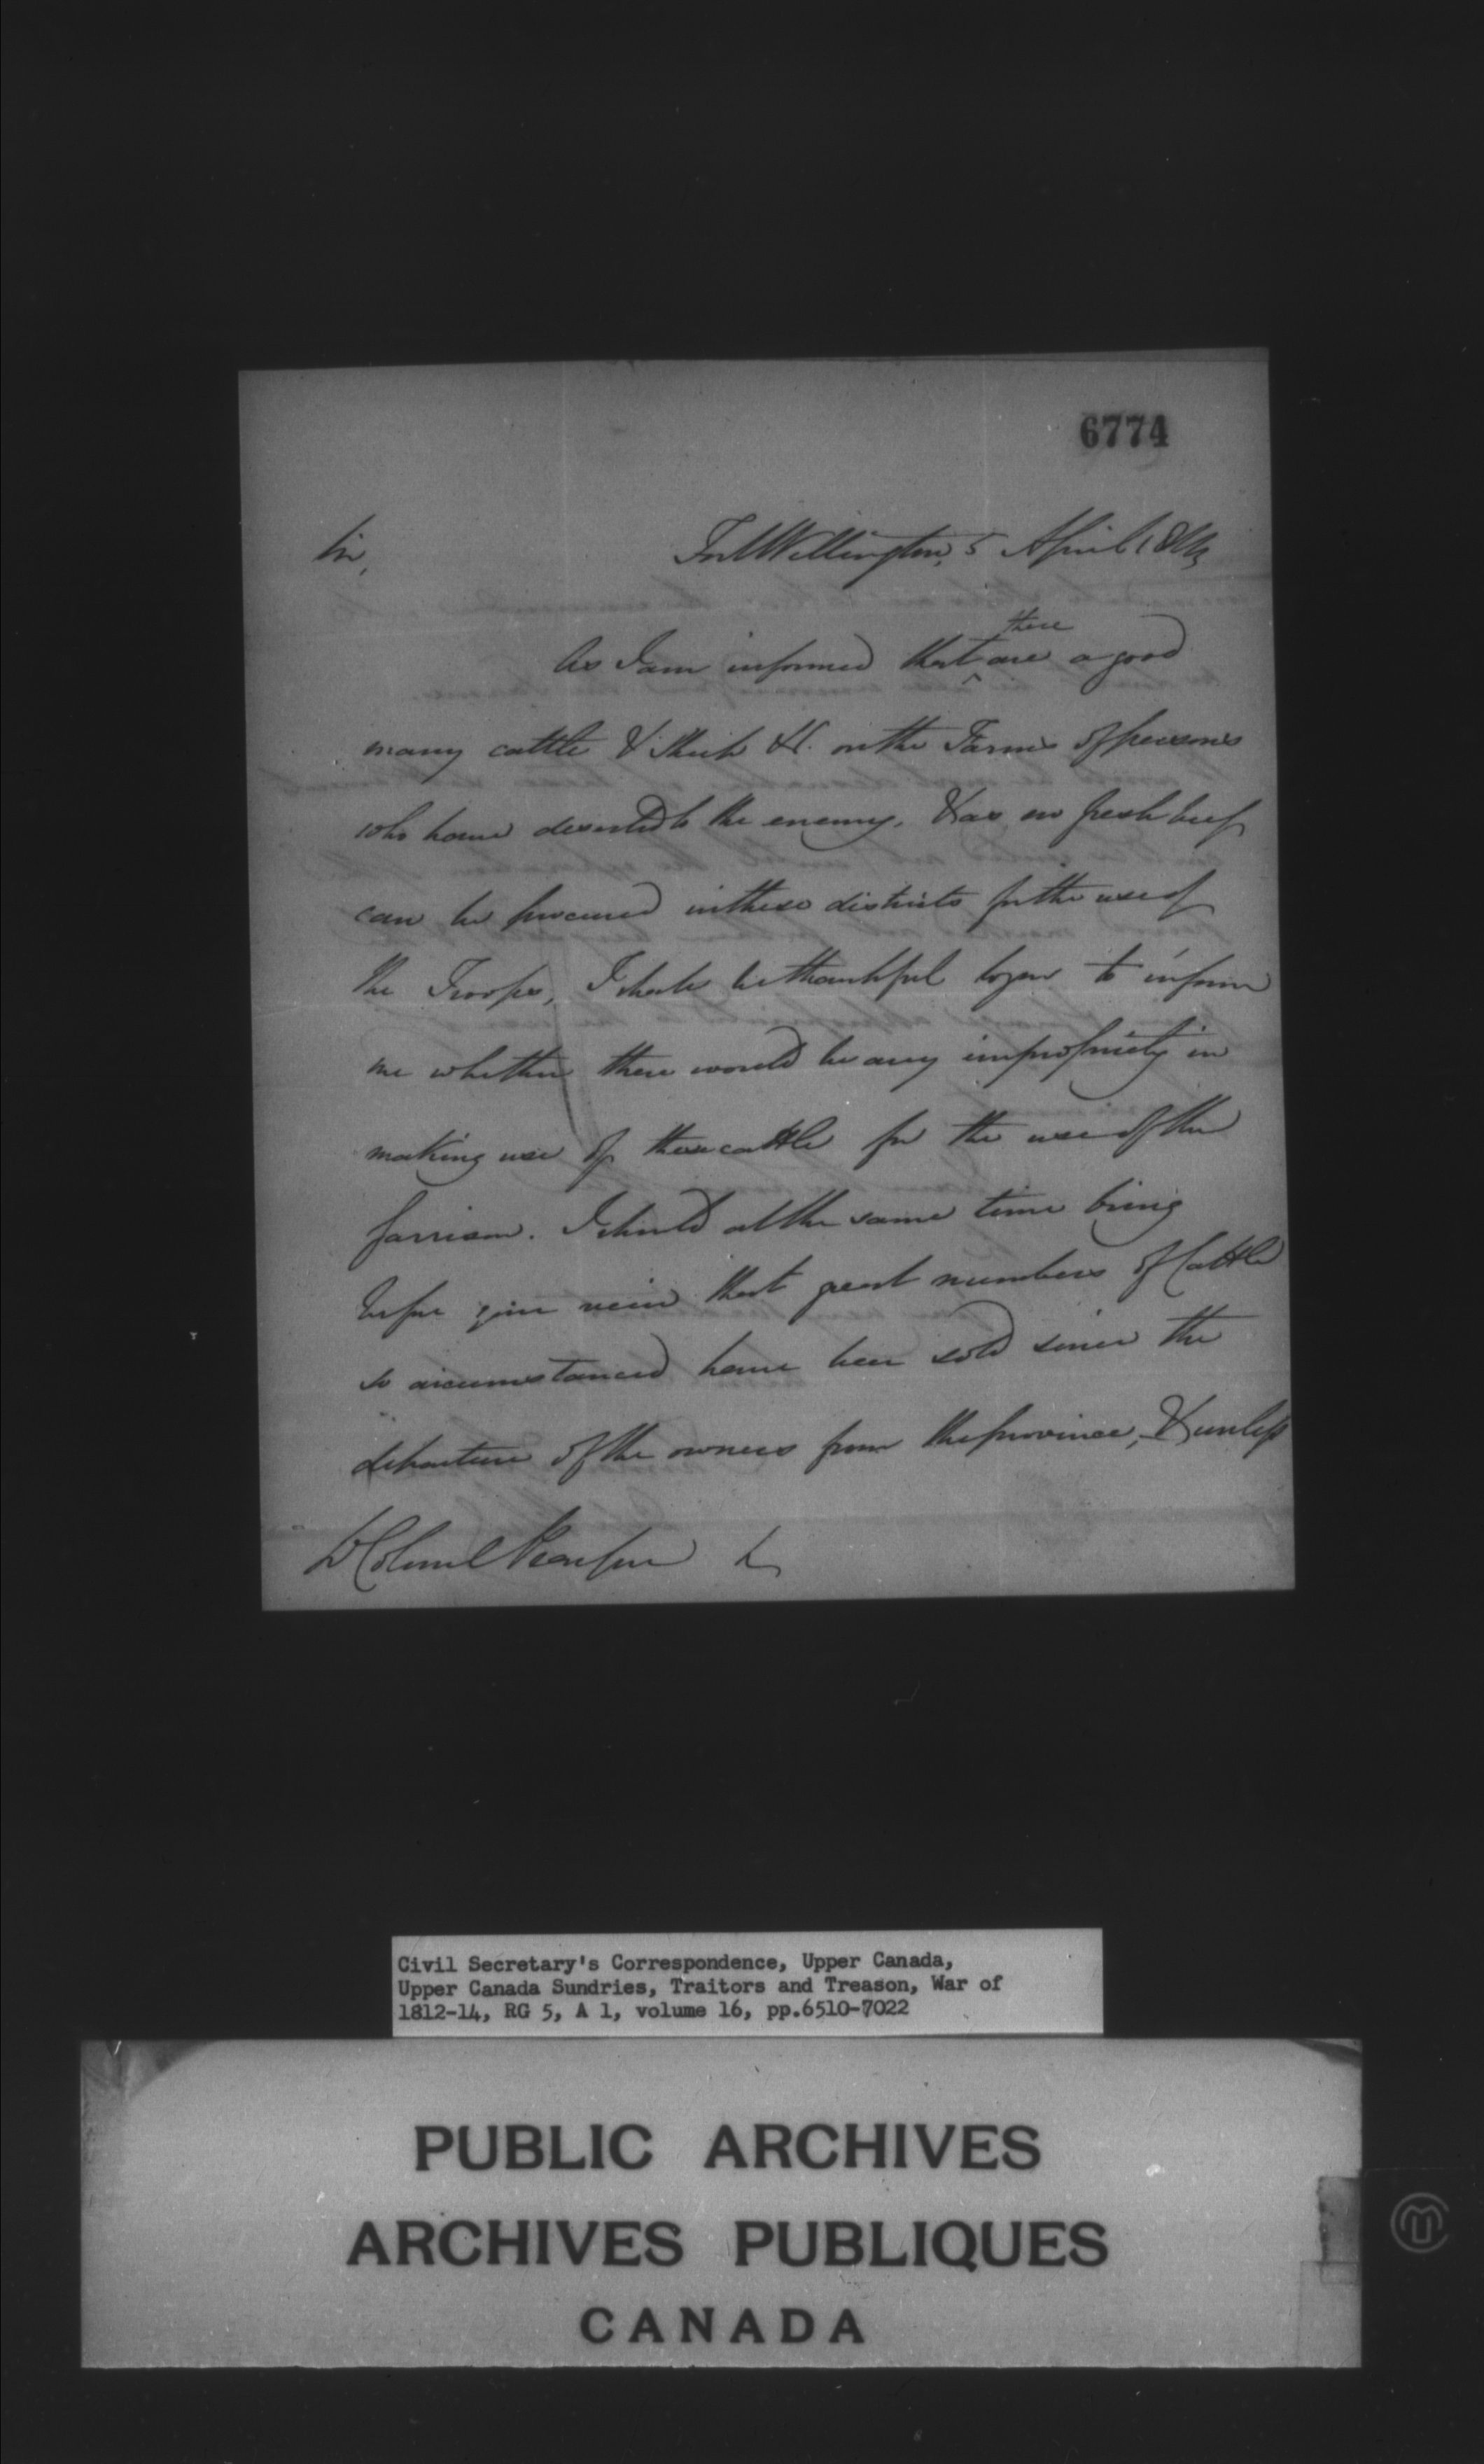 6774
Sir,
Fort Wellington, 5 April 1814
there
As I am informed that ^ are a good
many cattle & Sheep &c. on the Farms of persons
who have deserted to the enemy, & as no fresh beef
can be procured in these districts for the use of
the Troops, I shall be thankful to you to inform
me whether there would be any impropriety in
making use of these cattle for the use of the
Garrison. I should at the same time bring
before your view that great numbers of Cattle
so circumstanced have been sold since the
departure of the owners from the province, & unless
Lt Colonel Pearson
Civil Secretary's Correspondence, Upper Canada,
Upper Canada Sundries, Traitors and Treason, War of
1812-14, RG 5, A 1, volume 16, pp.6510-7022
PUBLIC ARCHIVES
ARCHIVES PUBLIQUES
CANADA